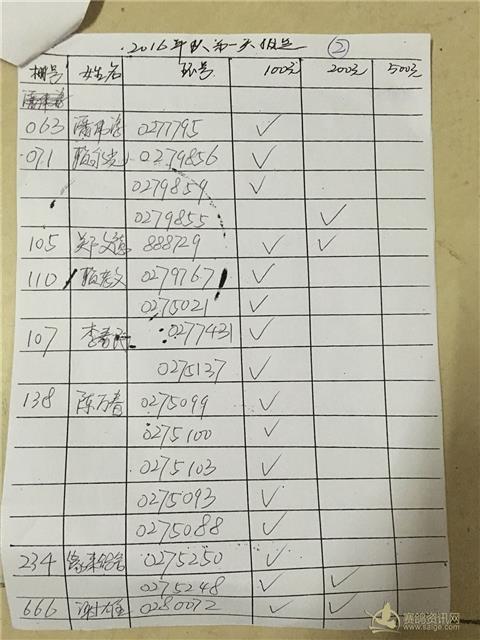 2016年秋第一关指定 ②
棚号 姓名 环号 100元 200元 500元
063 0277795 ✓
071 0279856 ✓
0279859 ✓
0279855 ✓
105 郑文德 888729 ✓ ✓
110 0279767 ✓
0275021 ✓
107 李春民 0277431 ✓
0275137 ✓
138 陈万春 0275099 ✓
0275100 ✓
0275103 ✓
0275093 ✓
0275088 ✓
234 0275250 ✓
0275248 ✓ ✓
666 谢 0280072 ✓ ✓
赛鸽资讯网
www.saige.com